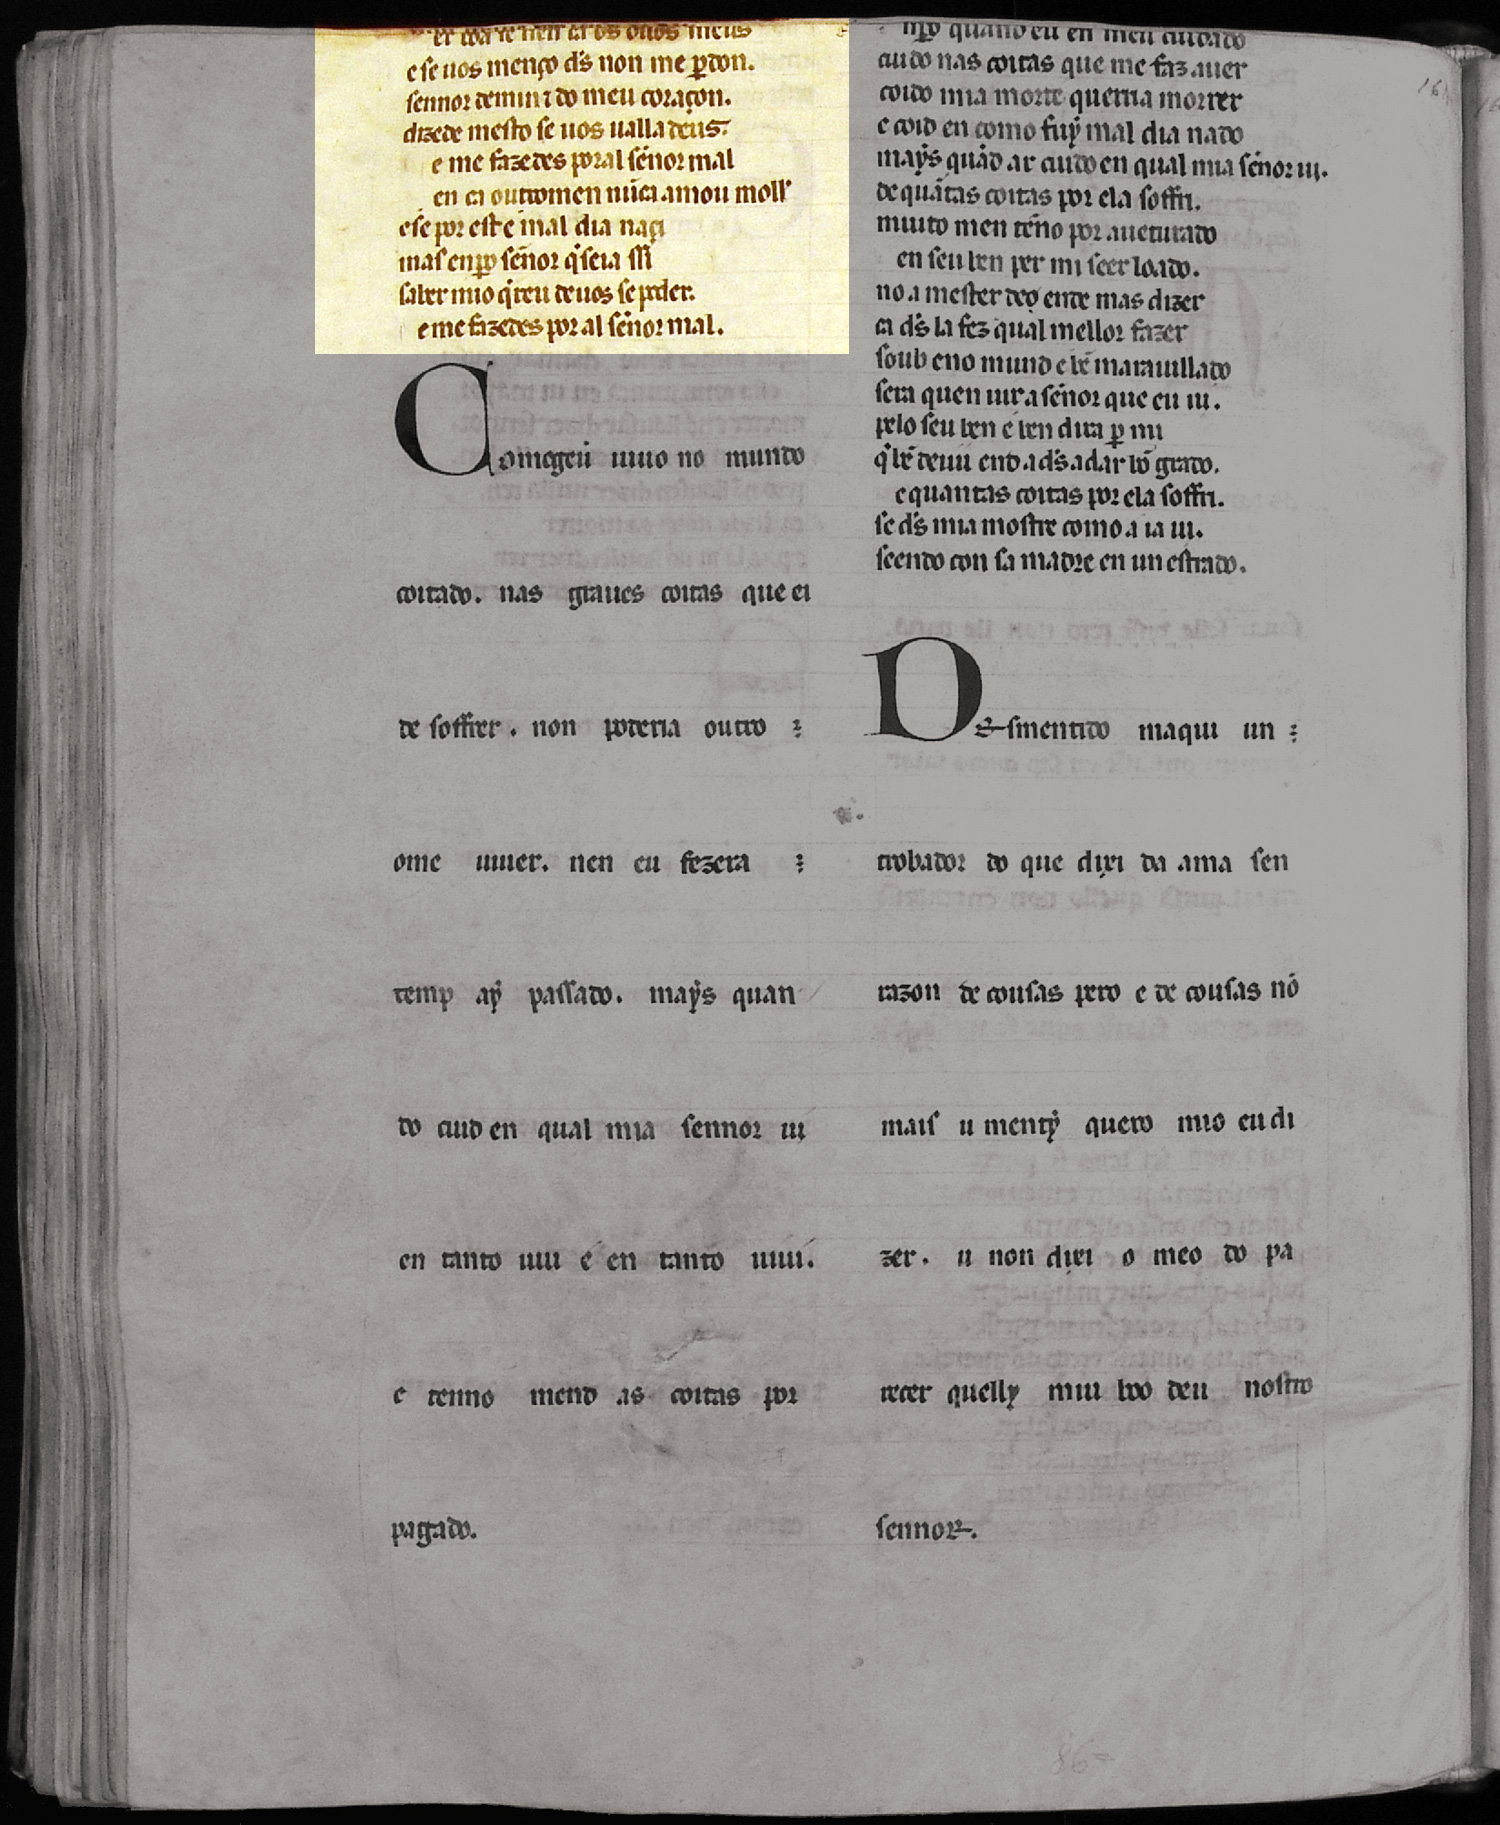 e se uos menço d̄s non me ꝑdon.
sennor demin ⁊ do meu coraçon.
dizede mesto se uos ualla deus.
e me fazedes por al sēnor mal
en ca outromen nūca amou moll'
e se por est e mal dia naçi
mas enpo sēnor q̇seia assi
saber mio q̇reu de uos se poder.
e me fazedes por al sēnor mal.
Comogeu uiuo no mundo
coitado. nas graues coitas que ei
de soffrer. non poderia outro
ome uiuer. nen eu fezera
temp aẏ passado. maẏs quan
do cuid en qual mia sennor ui
en tanto uiu e en tanto uiui.
e tenno mend as coitas por
pagado.
enpo quand eu en meu cuidado
cuido nas coitas que me faz auer
coido mia morte querria morrer
e coid en como fuẏ mal dia nado
maẏs quād ar cuido en qual mia sēnor ui.
de quātas coitas por ela soffri.
muito men tēno por auēturado
en seu ben per mi seer loado.
no a mester deo ende mas dizer
ca d̄s la fez qual mellor fazer
soub eno mund e bē marauillado
sera quen uir a sēnor que eu ui.
pelo seu ben e ben dira ꝑ mi
q̇ bē deuu end a d̄s a dar bō grado.
e quantas coitas por ela soffri.
se d̄s mia mostre como a ia ui.
seendo con sa madre en un estrado.
Desmentido maqui un
trobador do que dixi da ama sen
razon de cousas pero e de cousas nō
mais u mentẏ quero mio eu di
zer. u non dixi o meo do pa
recer quellẏ miu boo deu nostro
sennor.